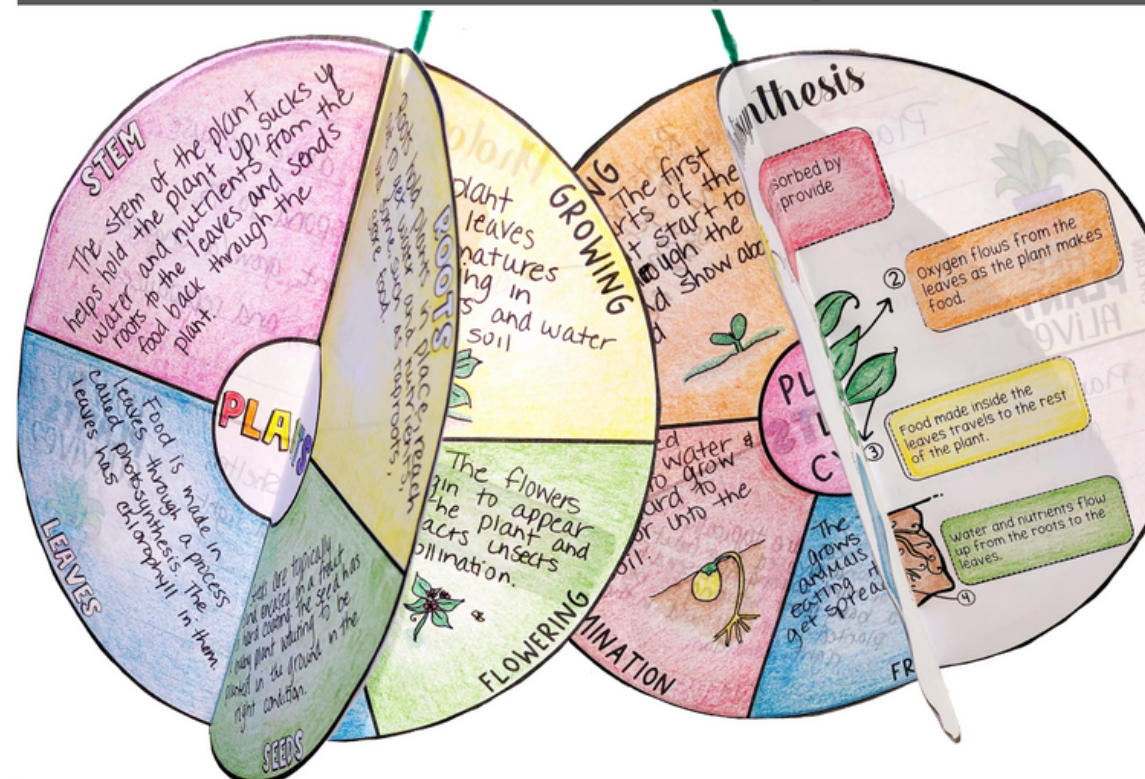 STEM
The stem of the plant
helps hold the plant up, sucks up
water and nutrients from the
roots to the leaves and sends
food back through the
plant.
LEAVES
Food is made in
leaves through a process
called photosynthesis. The
leaves has chlorophyll in them.
PLANTS
ROOTS
Roots hold plants in place, reach
water and nutrients,
as taproots,
food.
are typically
encased in a fruit
hard coating. The seed has
baby plant waiting to be
planted in the ground in the
right condition.
SEEDS
plant
leaves
natures
ing in
s and water
soil
GROWING
The flowers
in to appear
the plant and
acts insects
ollination.
FLOWERING
NG
The first
rts of the
t start to
ough the
d show abo
d
d
water &
grow
ard to
or into the
oil.
MINATION
PL
L
CY
The
grows
animals
eating
get spread
FR
nthesis
sorbed by
provide
②
Oxygen flows from the
leaves as the plant makes
food.
③
Food made inside the
leaves travels to the rest
of the plant.
④
water and nutrients flow
up from the roots to the
leaves.